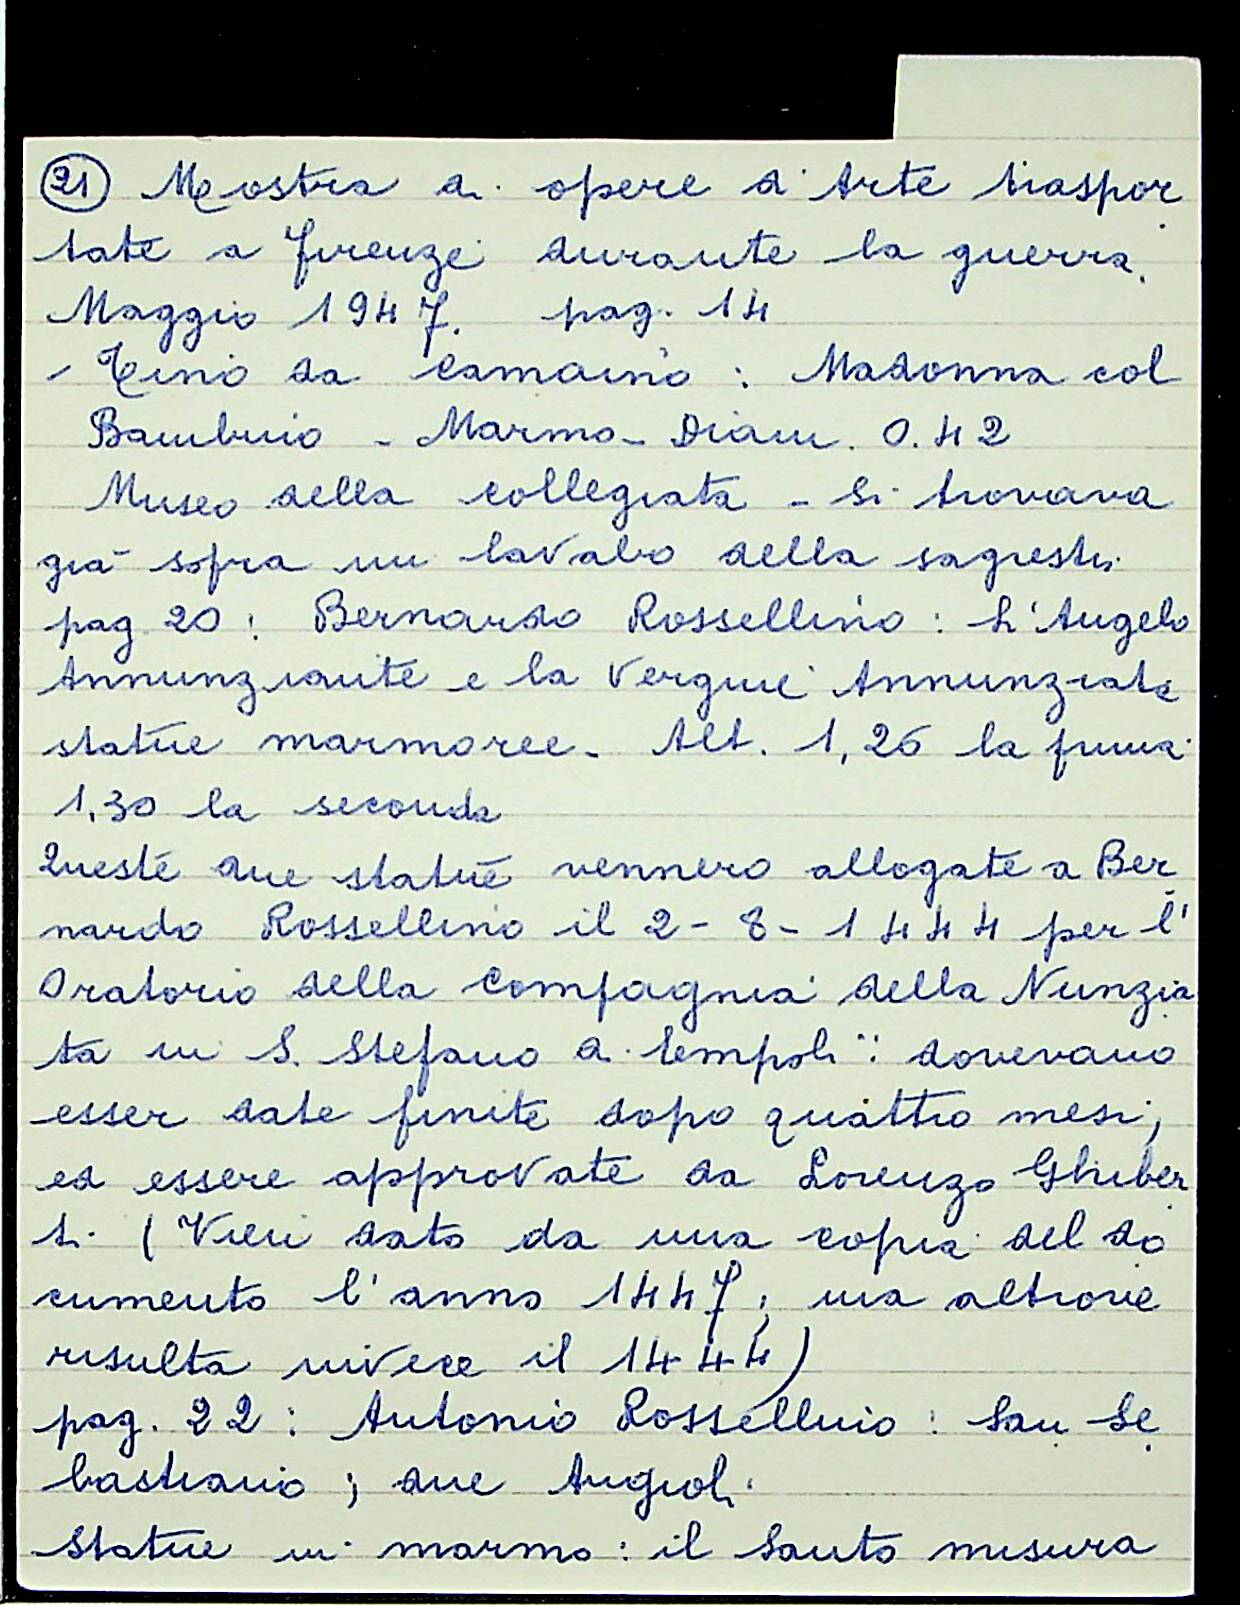 21 Mostra di opere d'Arte traspor
tate a Firenze durante la guerra.
Maggio 1947. pag. 14
- Tino da Camaino : Madonna col
Bambino - Marmo - Diam. 0.42
Museo della collegiata - Si trovava
già sopra un lavabo della sagrestia
pag 20 : Bernardo Rossellino : L'Angelo
Annunziante e la Vergine Annunziata
statue marmoree - Alt. 1,26 la prima
1,30 la seconda
Queste due statue vennero allogate a Ber
nardo Rossellino il 2-8-1444 per l'
Oratorio della Compagnia della Nunzia
ta in S. Stefano di Empoli : dovevano
esser date finite dopo quattro mesi,
ed essere approvate da Lorenzo Ghiber
ti. (Vien dato da una copia del do
cumento l'anno 1447 ; ma altrove
risulta invece il 1444)
pag. 22 : Antonio Rossellino : San Se
bastiano ; due Angioli.
Statue in marmo : il Santo misura